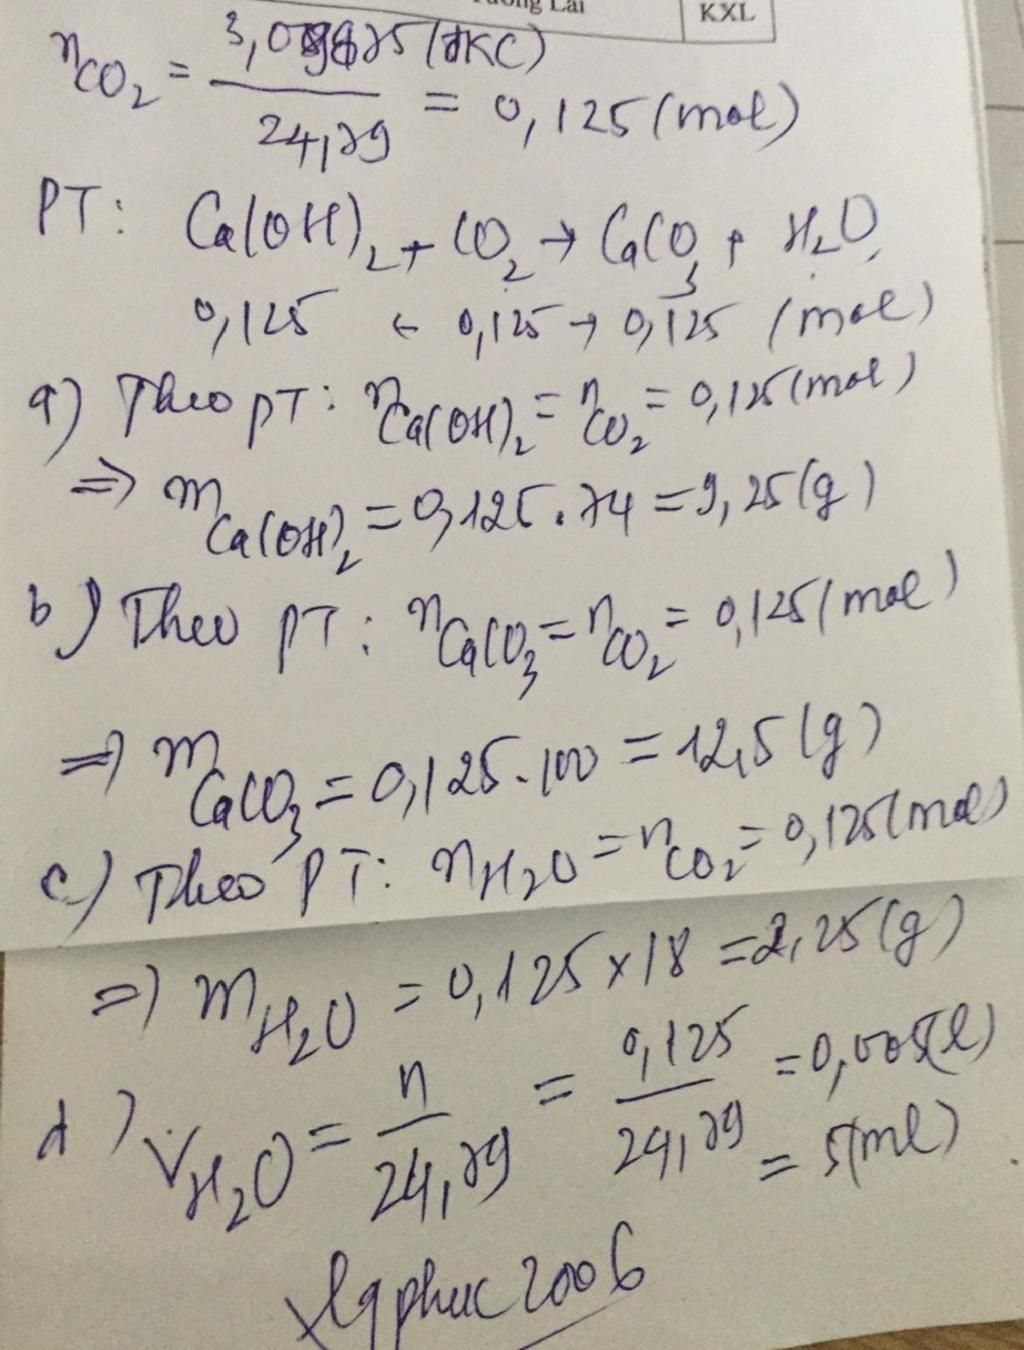 Tương Lai
KXL
nCO₂ = 3,09875 (đKC) / 24,79 = 0,125 (mol)
PT: Ca(OH)₂ + CO₂ → CaCO₃ + H₂O
0,125 ← 0,125 → 0,125 (mol)
a) Theo PT: nCa(OH)₂ = nCO₂ = 0,125 (mol)
=> mCa(OH)₂ = 0,125 . 74 = 9,25 (g)
b) Theo PT: nCaCO₃ = nCO₂ = 0,125 (mol)
=> mCaCO₃ = 0,125 . 100 = 12,5 (g)
c) Theo PT: nH₂O = nCO₂ = 0,125 (mol)
=> mH₂O = 0,125 x 18 = 2,25 (g)
d) VH₂O = n / 24,79 = 0,125 / 24,79 = 0,005 (l)
= 5 (ml)
lqphuc2006